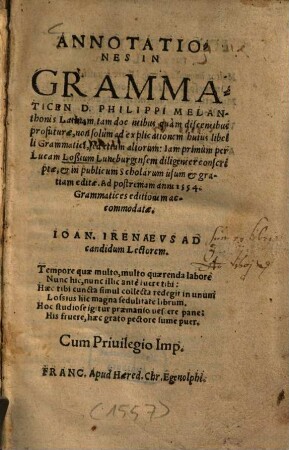 ANNOTATIO
NES IN
GRAMMA-
TICEN D. PHILIPPI MELAN
thonis Latinam, tam docentibus quàm discentibus
profuturæ, non solùm ad explicationem huius libel
li Grammatici, verùm etiam aliorum: Iam primùm per
Lucam Loßium Luneburgensem diligenter conscri
ptæ, & in publicum Scholarum usum & gra
tiam editæ. Ad postremam anno 1554.
Grammatices editionem ac-
commodatæ.
IOAN. IRENAEVS AD
candidum Lectorem.
Tempore quæ multo, multo quærenda labore
Nunc hic, nunc illic antè fuere tibi:
Hæc tibi cuncta simul collecta redegit in unum
Lossius hic magna sedulitate librum.
Hoc studiose igitur præmanso vescere pane:
His fruere, hæc grato pectore sume puer.
Cum Priuilegio Imp.
FRANC. Apud Hæred. Chr. Egenolphi.
(1557)